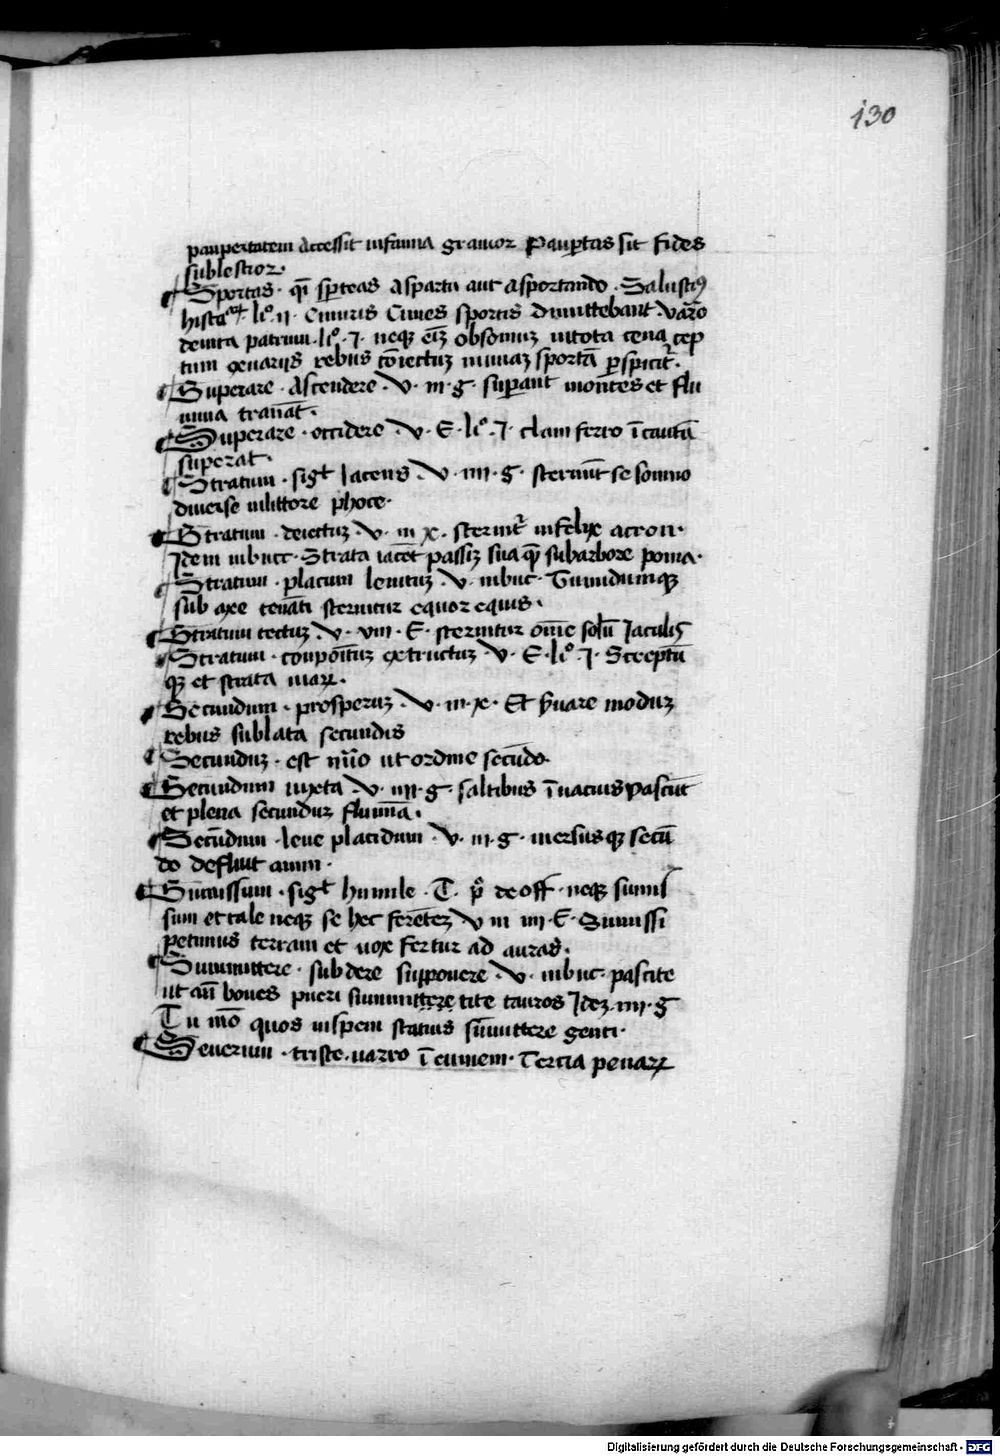 130
paupertatem accessit infamia grauior Paupertas sit fides
sublestior.
Sportas · q̄ sp̄teas a sparta aut asportando · Salusti⁹
lio. ii · Cimiris Ciues sportis dimittebant Uaro
de uita patrum · lio. i · neqꝫ obsonium in tota cena
rebus sportā p̄spicit̄.
Superare · Ascendere · v · iii · g · sup̄ant montes et flu
mina tranāt.
Superare · occidere · v · E · lio. i · clam ferro ī cautū
superat.
Stratum · sigt Iacens v · iiii · g · sternūt se somno
diuerse in littore phoce.
Stratum · deiectuꝫ · v · in x · sternit̄ infelix acron.
Idem in buc · Strata iacēt passiꝫ sua q̄ꝫ sub arbore poma.
Stratum · placatum lenituꝫ · v · in buc · Tumidumqꝫ
sub axe tenāti sternitur equor equis.
Stratum tectuꝫ v · viii · E · sternitur om̄e solū Iaculis
Stratum · conpositum extructuꝫ v · E · lio. i · Streptū
qꝫ et strata uiaꝝ.
Secundum · prosperuꝫ · v · in x · Et s̄uare moduꝫ
rebus sublata secundis
Secunduꝫ · est nūo ut ordine secūdo.
Secundum iuxta · v · iii · g · saltibus ī uacuis pascūt
et plena secunduꝫ flumina.
Secūdum · leue placidum · v · iii · g · mersus qꝫ secū
do defluit amni.
Sumissum · sigt humile · T · p̄ de off · neqꝫ sumis
sum et tale neqꝫ se hec ferentem v in iii · E · Sumissi
petimus terram et uox fertur ad auras.
Summittere · subdere supponere · v · in buc · pascite
ut an̄ boues pueri summittere tite tauros Ideꝫ · iii · g
Tu mō quos in spem status sūmittere genti.
Seuerum · triste · uarro ī eumem · Tercia penaꝝ
Digitalisierung gefördert durch die Deutsche Forschungsgemeinschaft - DFG